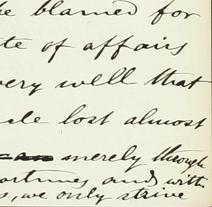 be blamed for
te of affairs
very well that
le lost almost
merely through
ortunes and with
s, we only strive